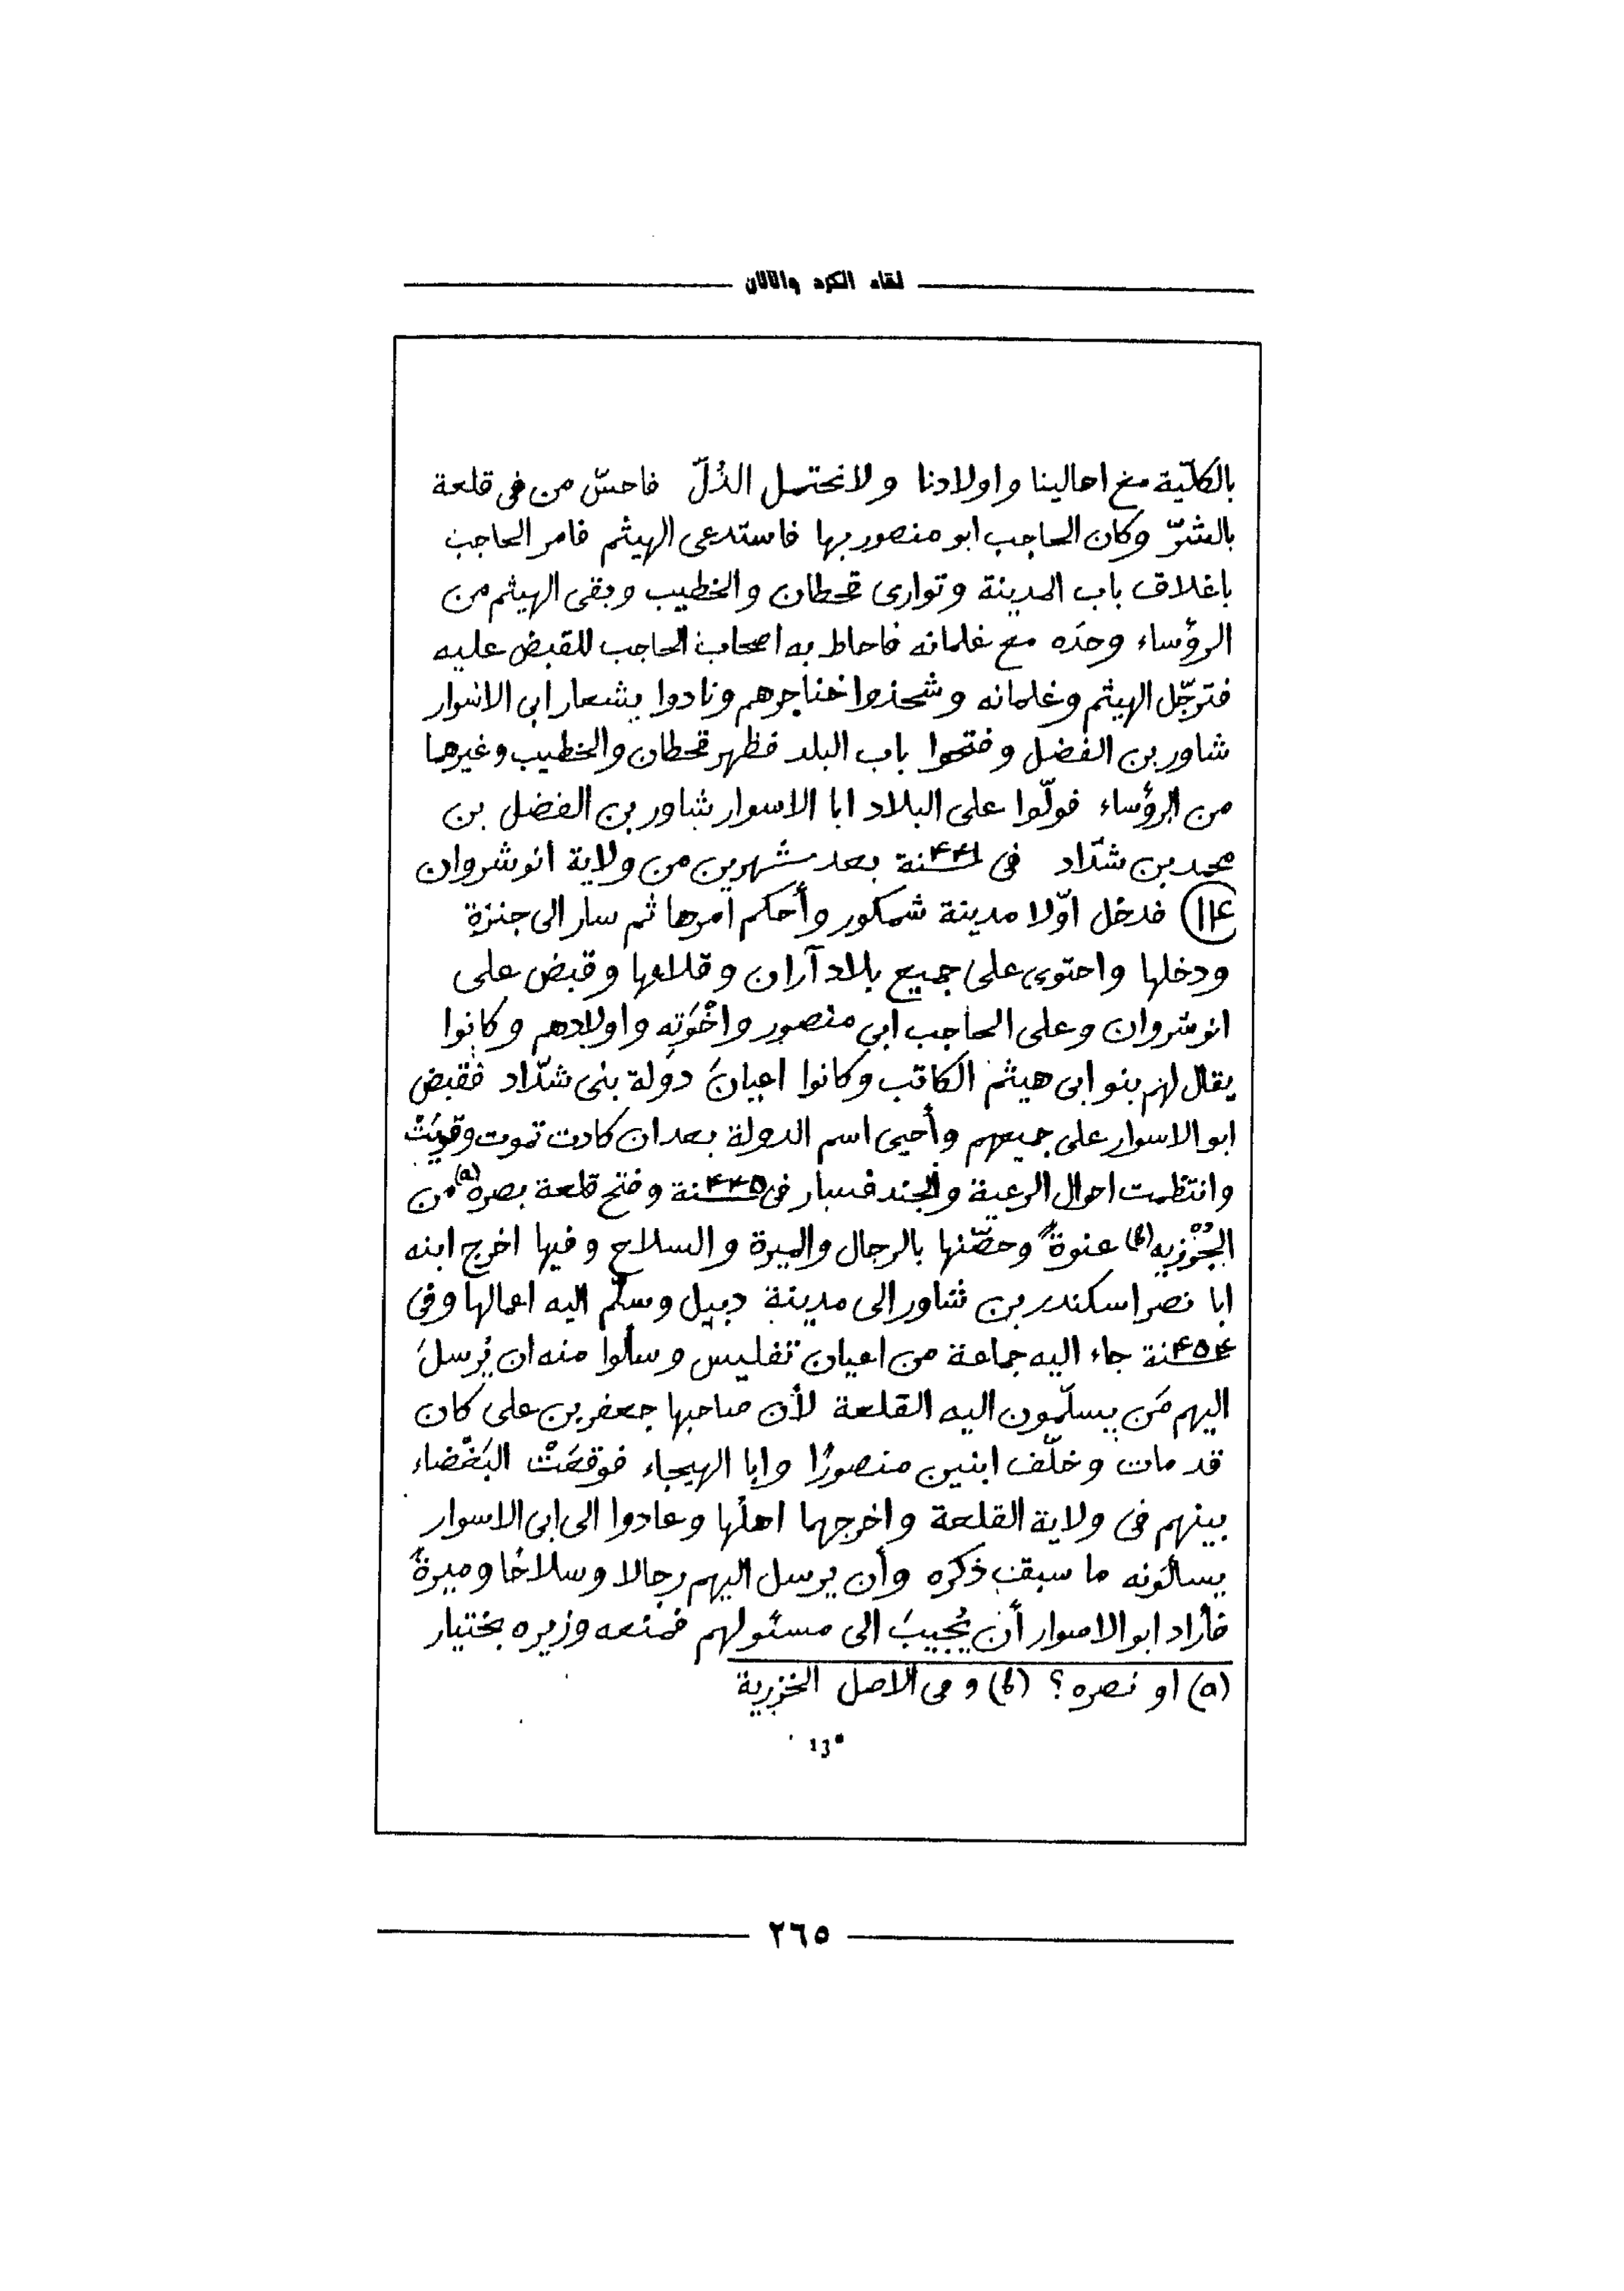 لقاء الكرد واللان
بالكلّية مع اهالينا و اولادنا و لا نحتمل الذُلّ فاحسّ من فى قلعة
بالشرّ وكان الحاجب ابو منصور بها فاستدعى الهيثم فامر الحاجب
باغلاق باب المدينة و توارى قحطان والخطيب وبقى الهيثم من
الرؤساء وحدَه مع غلمانه فاحاط به اصحاب الحاجب للقبض عليه
فترجّل الهيثم وغلمانه وشحذوا خناجرهم ونادوا بشعار ابى الاسوار
شاور بن الفضل وفتحوا باب البلد فظهر قحطان والخطيب وغيرهما
من الرؤساء فولّوا على البلاد ابا الاسوار شاور بن الفضل بن
محمد بن شدّاد فى سنة ۴۴۱ بعد شهرين من ولاية انوشروان
(۱۴) فدخل اوّلا مدينة شمكور وأحكم امرها ثم سار الى جنزة
ودخلها واحتوى على جميع بلاد آران وقلاعها وقبض على
انوشروان وعلى الحاجب ابى منصور واخْوَتِه واولادهم وكانوا
يقال لهم بنو ابى هيثم الكاتب وكانوا اعيانَ دَولة بنى شدّاد فقبض
ابو الاسوار على جميعهم وأحيى اسم الدولة بعد ان كادت تموت وقويَتْ
وانتظمت احوال الرعية والجند فسار فى سنة ۴۴۵ وفتح قلعة بصره (a) من
الجُرْزيه (b) عنوةً وحصّنها بالرجال والميرة والسلاح وفيها اخرج ابنه
ابا نصر اسكندر بن شاور الى مدينة دبيل وسلّم اليه اعمالها وفى
سنة ۴۵۴ جاء اليه جماعة من اعيان تفليس وسألوا منه ان يُرسلَ
اليهم مَن يسلّمون اليه القلعة لأن صاحبها جعفر بن على كان
قد مات وخلّف ابنين منصورًا وابا الهيجاء فوقعَتْ البَغْضاء
بينهم فى ولاية القلعة واخرجهما اهلُها وعادوا الى ابى الاسوار
يسألونه ما سبقت ذكره وأن يرسل اليهم رجالا وسلاحًا وميرةً
فأراد ابو الاسوار أن يُجيبَ الى مسئولهم فمنعه وزيره بختيار
(a) او نصره؟ (b) و فى الاصل الخزرية
13*
٢٦٥